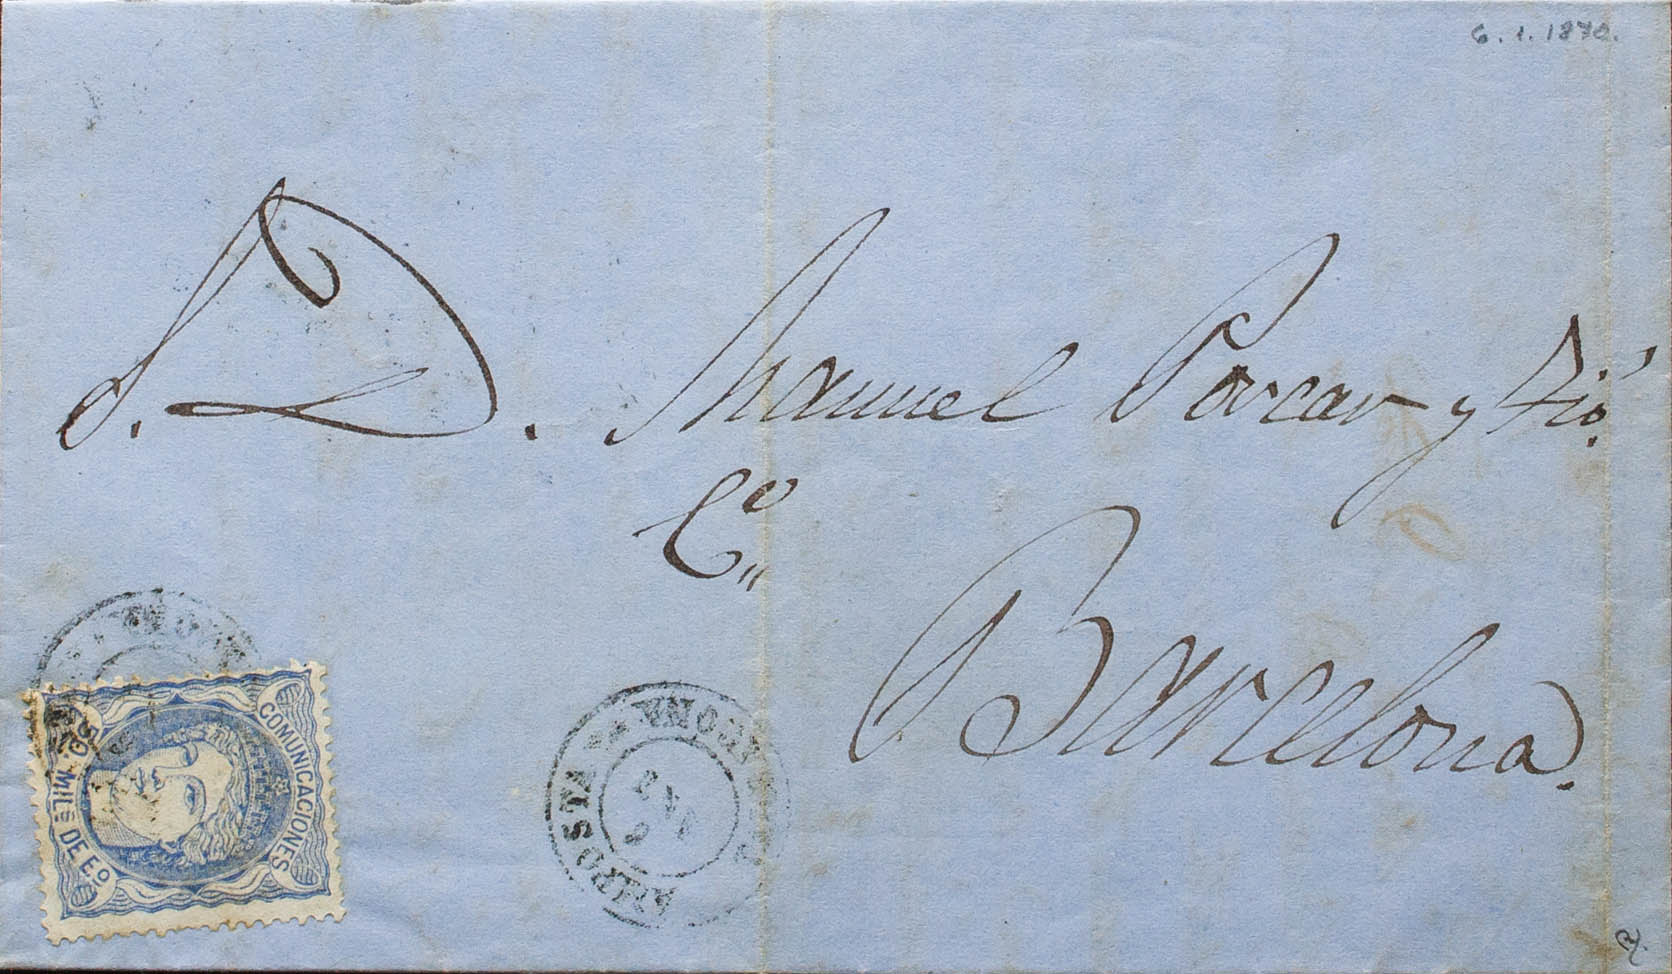 6.1.1870.
S. D. Manuel Porcar y Tió.
Cº
Barcelona.
COMUNICACIONES
50 MILS DE EO
AMPOSTA TARRAGONA